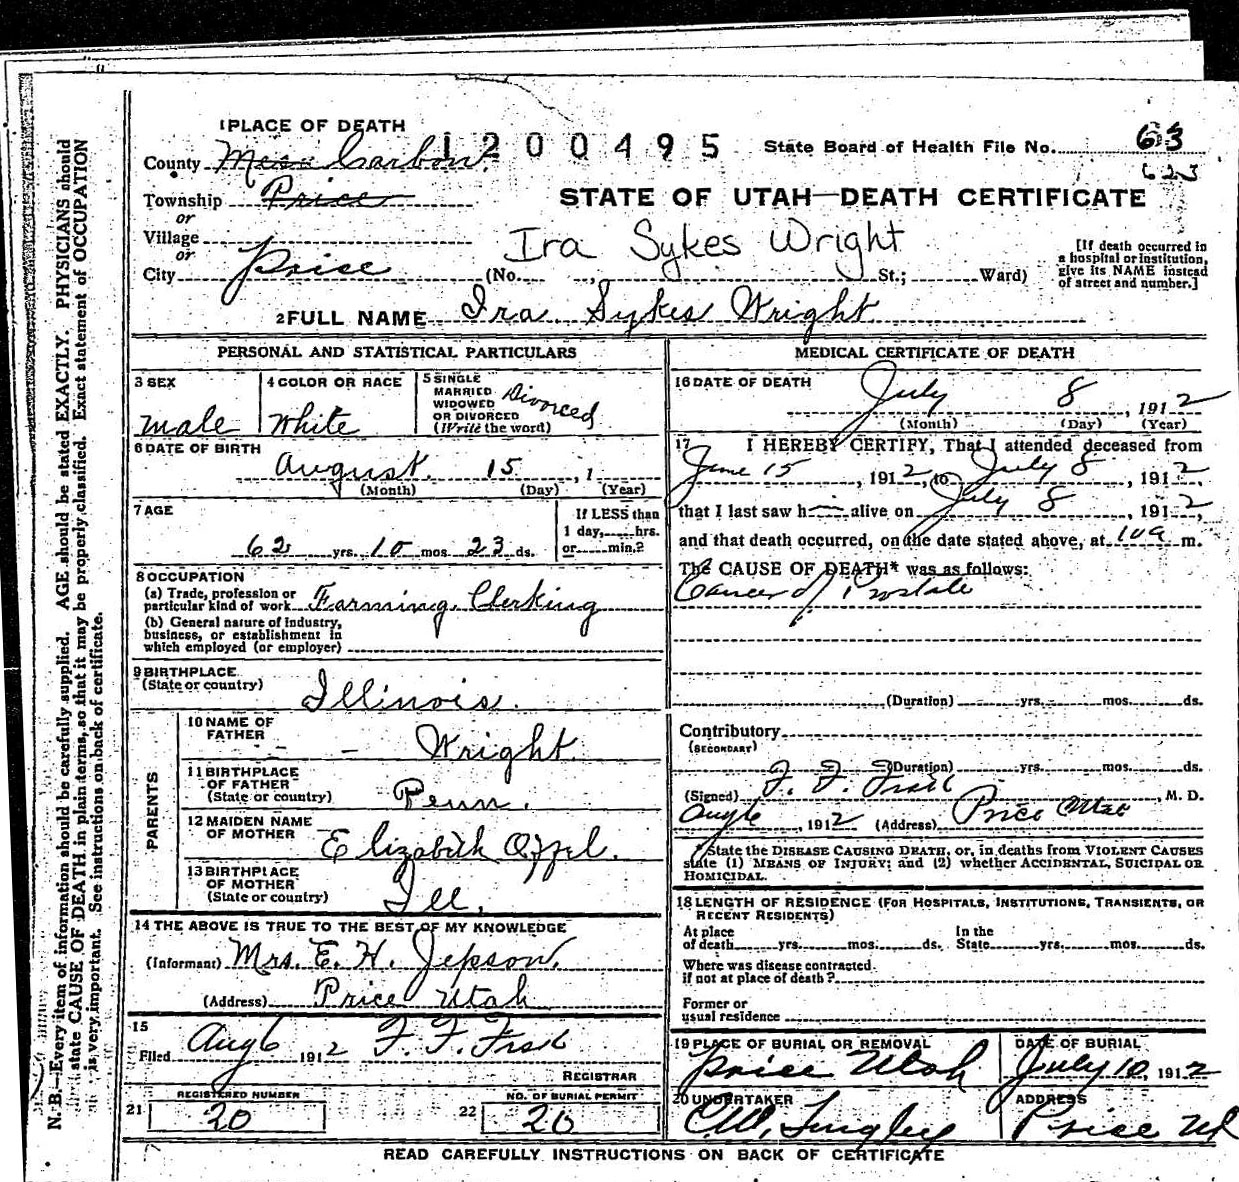 1 PLACE OF DEATH
1200495
State Board of Health File No. 63
623
County Carbon
Township Price
or
Village
or
City Price
STATE OF UTAH—DEATH CERTIFICATE
Ira Sykes Wright
(No. , St.; Ward)
[If death occurred in
a hospital or institution,
give its NAME instead
of street and number.]
2 FULL NAME Ira Sykes Wright
PERSONAL AND STATISTICAL PARTICULARS
3 SEX
male
4 COLOR OR RACE
White
5 SINGLE
MARRIED
WIDOWED
OR DIVORCED
(Write the word)
Divorced
6 DATE OF BIRTH
August 15, 1
(Month) (Day) (Year)
7 AGE
62 yrs. 10 mos. 23 ds.
If LESS than
1 day, hrs.
or min.?
8 OCCUPATION
(a) Trade, profession or
particular kind of work Farming, Clerking
(b) General nature of industry,
business, or establishment in
which employed (or employer)
9 BIRTHPLACE
(State or country) Illinois.
PARENTS
10 NAME OF
FATHER
— — — Wright
11 BIRTHPLACE
OF FATHER
(State or country) Penn.
12 MAIDEN NAME
OF MOTHER Elizabeth
13 BIRTHPLACE
OF MOTHER
(State or country) Ill.
14 THE ABOVE IS TRUE TO THE BEST OF MY KNOWLEDGE
(Informant) Mrs. E. H. Jepson.
(Address) Price Utah
15
Filed Aug 6 1912 F. F.
REGISTRAR
REGISTERED NUMBER
21 20
NO. OF BURIAL PERMIT
22 20
MEDICAL CERTIFICATE OF DEATH
16 DATE OF DEATH
July 8, 1912
(Month) (Day) (Year)
17 I HEREBY CERTIFY, That I attended deceased from
June 15, 1912, to July 8, 1912,
that I last saw h— alive on July 8, 1912,
and that death occurred, on the date stated above, at 10 a m.
The CAUSE OF DEATH* was as follows:
Cancer of Prostate
(Duration) yrs. mos. ds.
Contributory
(SECONDARY)
(Duration) yrs. mos. ds.
(Signed) F. F. , M. D.
Aug 6, 1912 (Address) Price Utah
*State the DISEASE CAUSING DEATH, or, in deaths from VIOLENT CAUSES
state (1) MEANS OF INJURY; and (2) whether ACCIDENTAL, SUICIDAL OR
HOMICIDAL.
18 LENGTH OF RESIDENCE (FOR HOSPITALS, INSTITUTIONS, TRANSIENTS, OR
RECENT RESIDENTS)
At place
of death yrs. mos. ds.
In the
State yrs. mos. ds.
Where was disease contracted
if not at place of death?
Former or
usual residence
19 PLACE OF BURIAL OR REMOVAL
Price Utah
DATE OF BURIAL
July 10, 1912
20 UNDERTAKER
ADDRESS
Price Ut
READ CAREFULLY INSTRUCTIONS ON BACK OF CERTIFICATE
N. B.—Every item of information should be carefully supplied. AGE should be stated EXACTLY. PHYSICIANS should
state CAUSE OF DEATH in plain terms, so that it may be properly classified. Exact statement of OCCUPATION
is very important. See instructions on back of certificate.